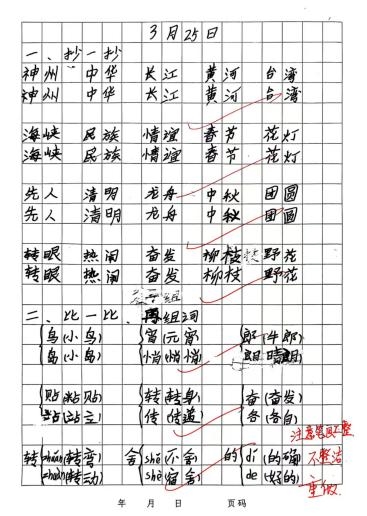 3月25日
一、抄一抄
神州 中华 长江 黄河 台湾
神州 中华 长江 黄河 台湾
海峡 民族 情谊 春节 花灯
海峡 民族 情谊 春节 花灯
先人 清明 龙舟 中秋 团圆
先人 清明 龙舟 中秋 团圆
转眼 热闹 奋发 柳枝 野花
转眼 热闹 奋发 柳枝 野花
二、比一比、再组词
鸟(小鸟) 宵(元宵) 郎(牛郎)
岛(小岛) 悄(悄悄)
贴(粘贴) 转(转身) 奋(奋发)
站(站立) 传(传道) 各(各自)
注意笔画工整
转 zhuǎn(转弯) 舍 shě(不舍) 的 dí(的确)
zhuàn(转动) shè(宿舍) de(好的)
不整洁
重做
年 月 日 页码